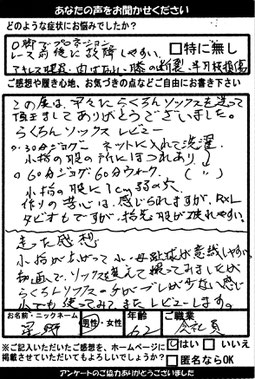 あなたの声をお聞かせください
どのような症状にお悩みでしたか?
O脚でプロネーション
レース前後に故障しやすい。
□特に無し
アキレス腱 膝の 半月板損傷
ご感想や履き心地、お気づきの点などご自由にお書き下さい
この度は、早々にらくらくソックスを送って
頂きましてありがとうございました。
らくらくソックス レビュー
○30分ジョグ ネットに入れて洗濯
小指の股の所にほつれあり
○60分ジョグ 60分ウォーク
小指の股に1cm弱の穴
作りの苦心は、感じられますが、RxL
タビオもですが、指先、股が破れやすい。
走った感想
指が上がって小・母趾球が意識しやすい。
動画で、ソックスを変えて撮ってみましたが
らくらくソックスの チがブレが少ない感じ
でも使ってみて、またレビューします。
お名前・ニックネーム
男性・女性
年齢
62
ご職業
会社員
※ご記入いただいたご感想を、ホームページに
掲載させていただいてもよろしいでしょうか?
はい □いいえ
□匿名ならOK
アンケートのご協力ありがとうございました